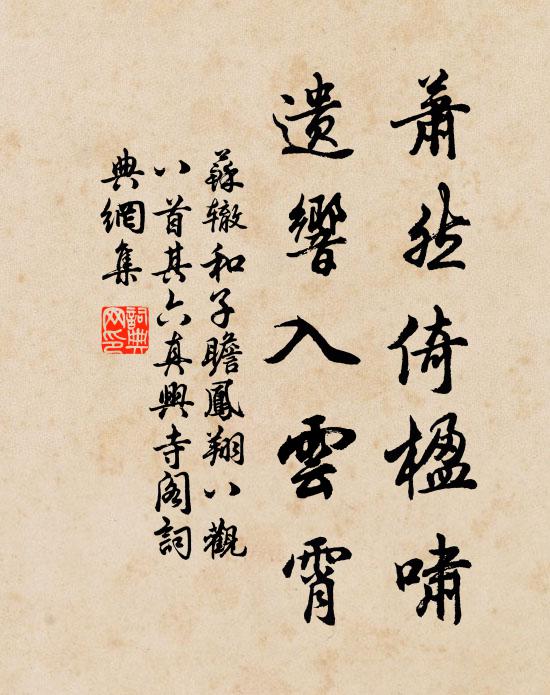 蕭然倚楹嘯
遺響入雲霄
蘇辙和子瞻鳳翔八觀
八首其六真興寺阁詞
典網集
詞典
网印